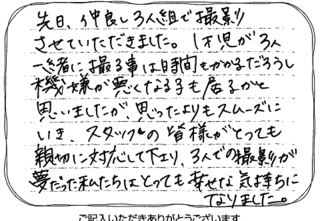 先日、仲良し3人組で撮影
させていただきました。1才児が3人
一緒に撮る事は時間もかかるだろうし
機嫌が悪くなる子も居るかと
思いましたが、思ったよりもスムーズに
いき、スタッフの皆様がとっても
親切に対応して下さり、3人での撮影が
夢だった私たちはとっても幸せな気持ちに
なりました。
ご記入いただきありがとうございます